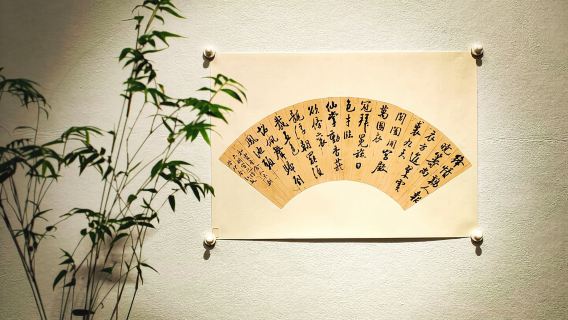 絳幘雞人報
曉籌尚
衣方進翠雲
裘九天
閶闔開宮殿
萬國衣
冠拜冕旒日
色才臨
仙掌動香煙
欲傍袞
龍浮朝罷須
裁五色
詔佩聲歸到
鳳池頭